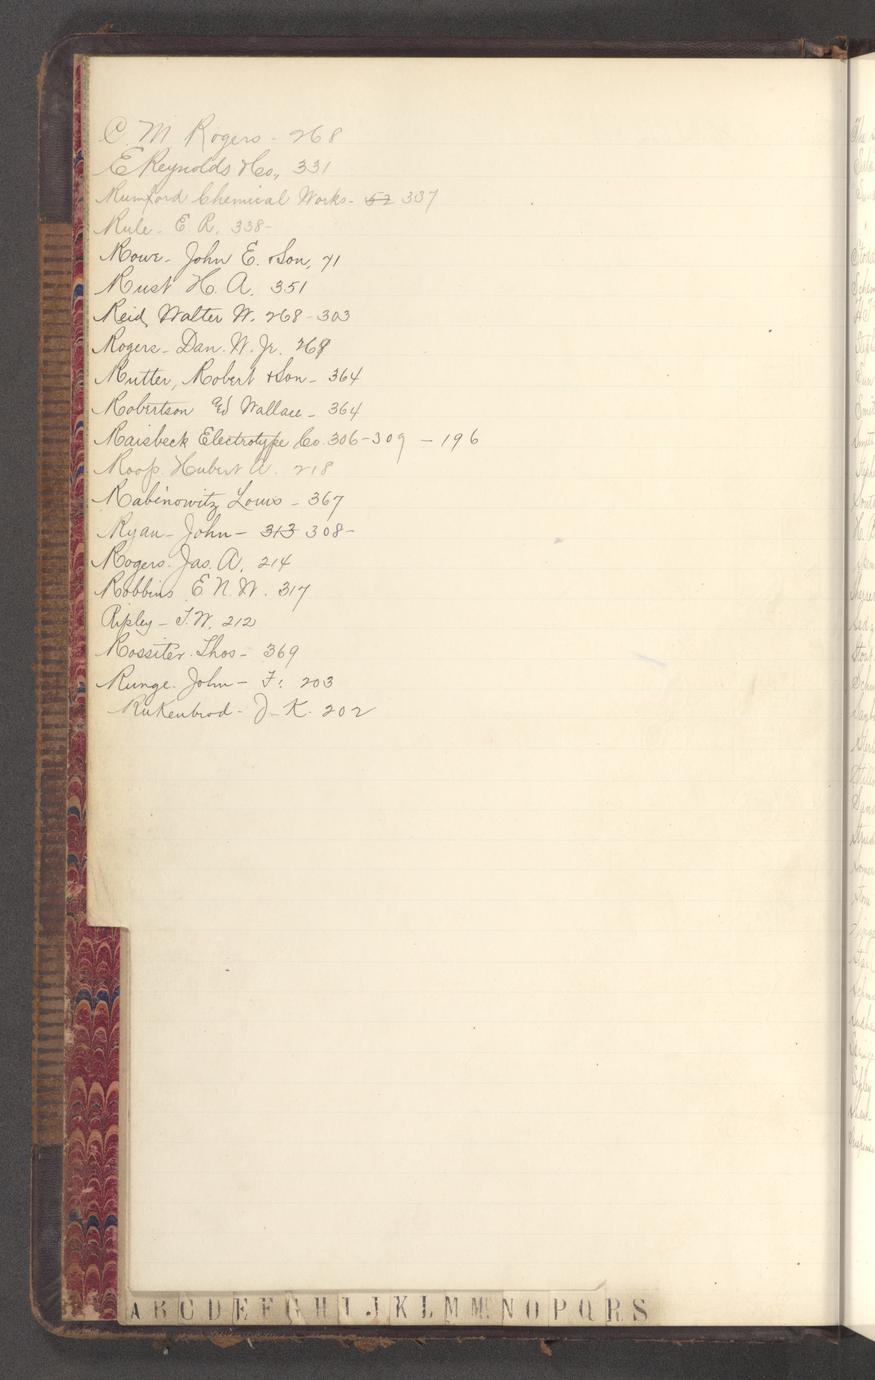 C. M. Rogers - 268
E Reynolds & Co., 331
Rumford Chemical Works - 52 337
Rule - E. R. 338-
Rowe - John E. & Son, 71
Rust H. A. 351
Reid, Walter W. 268-303
Rogers - Dan. W. Jr. 268
Rutter, Robert & Son - 364
Robertson Ed Wallace - 364
Raisbeck Electrotype Co. 306-309 - 196
Roop. Hubert A. 218
Rabinowitz Louis - 367
Ryan - John - 313 308-
Rogers. Jas. A. 214
Robbins. E. N. W. 317
Ripley - T. W. 212
Rossiter. Thos - 369
Runge. John - F. 203
Rukenbrod - J - K. 202
A B C D E F G H I J K L M Mc N O P Q R S